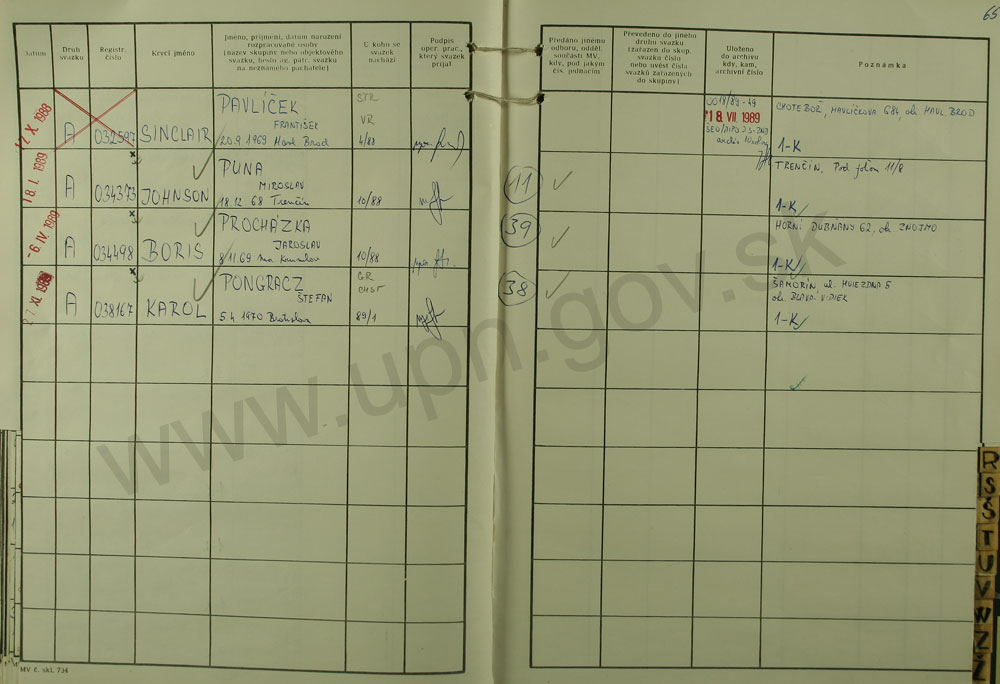 65
Datum
Druh svazku
Registr. číslo
Krycí jméno
Jméno, příjmení, datum narození
rozpracované osoby
(název skupiny nebo objektového
svazku, heslo ag. pátr. svazku
na neznámého pachatele)
U koho se
svazek
nachází
Podpis
oper. prac.,
který svazek
přijal
Předáno jinému
odboru, odděl.
součásti MV,
kdy, pod jakým
čís. jednacím
Převedeno do jiného
druhu svazku
(zařazen do skup.
svazku číslo
nebo uvést čísla
svazků zařazených
do skupiny)
Uloženo
do archivu
kdy, kam,
archivní číslo
Poznámka
17. X. 1988
A
032597
SINCLAIR
PAVLÍČEK
FRANTIŠEK
20.9.1969 Havl. Brod
STR
VR
4/88
18. VII. 1989
CHOTEBOŘ, HAVLÍČKOVA 684, ok. HAVL. BROD
1-K
18. I. 1989
A
034373
JOHNSON
PUNA
MIROSLAV
18.12 68 Trenčín
10/88
11
TRENČÍN, Pod 11/8
1-K
-6. IV. 1989
A
034498
BORIS
PROCHÁZKA
JAROSLAV
8/11 69
10/88
39
HORNÍ DUBŇANY 62, ok. ZNOJMO
1-K
XI. 1989
A
038167
KAROL
PONGRACZ
ŠTEFAN
5.4.1970 Bratislava
GR
89/1
38
ŠAMORÍN, ul. HVIEZDNA 5
ok. BLAVA, VIDIEK
1-K
www.upn.gov.sk
MV č. skl. 734
R
S
Š
T
U
V
W
Z
Ž